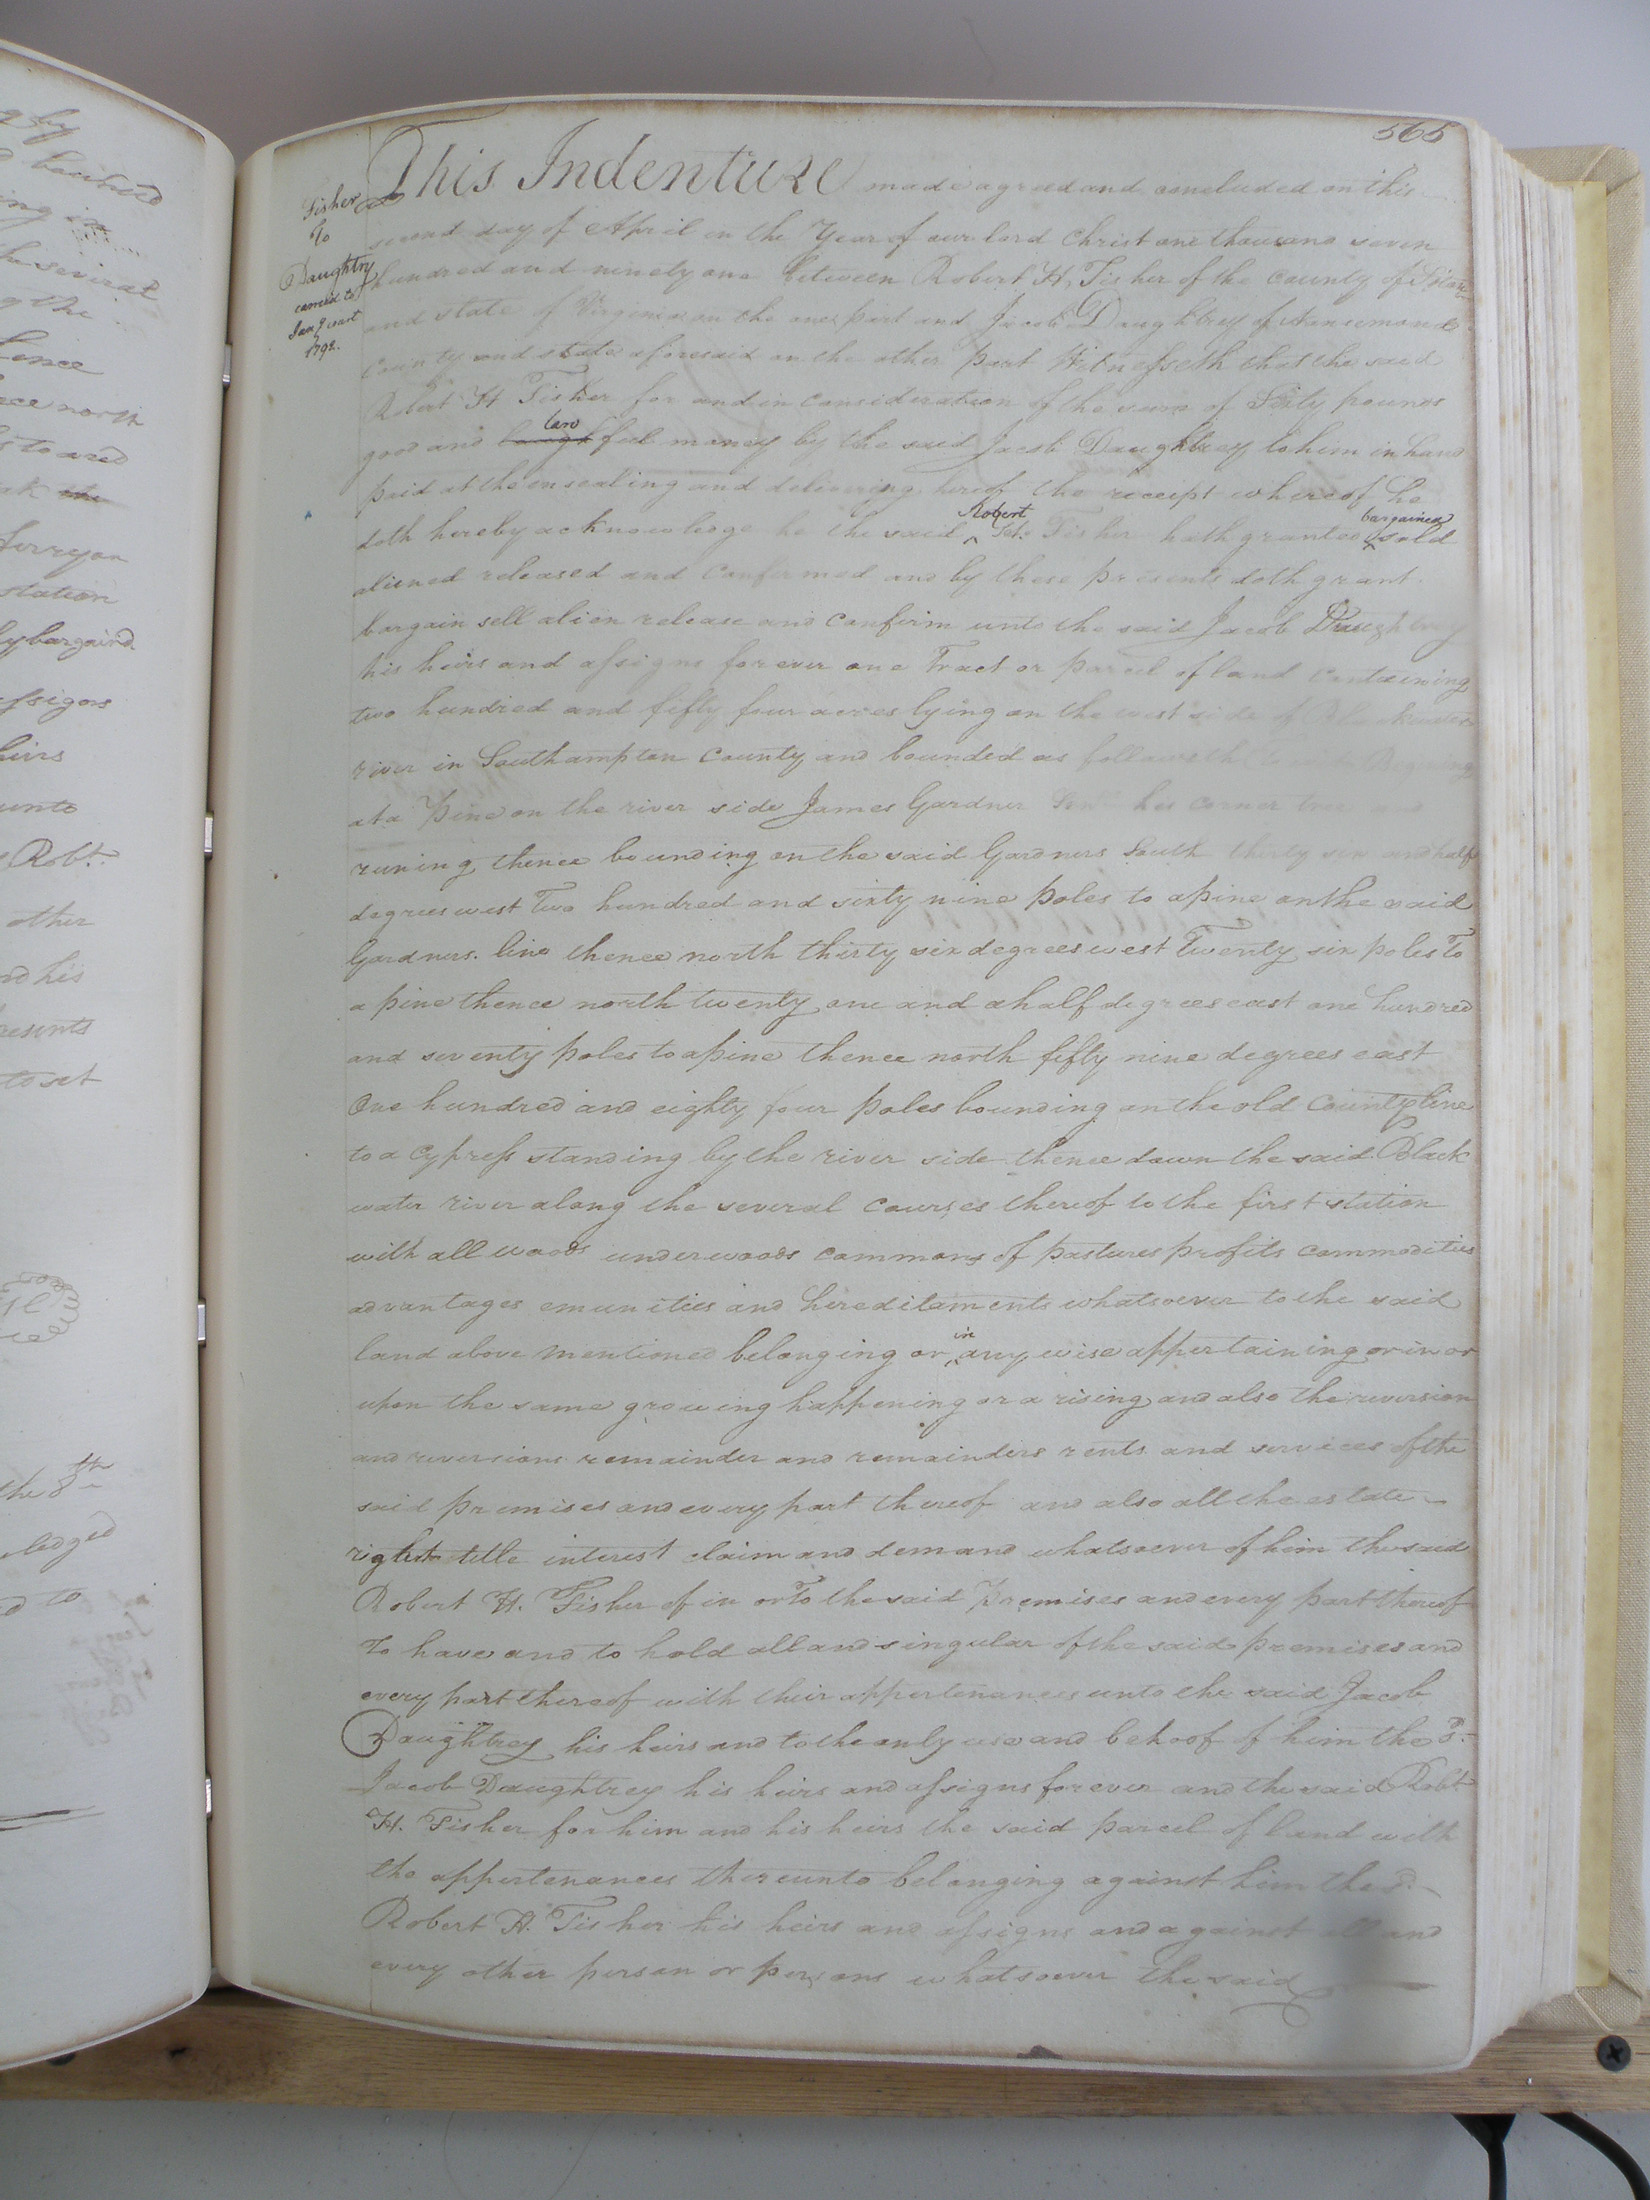 565
Fisher
To
Daughtry
carried to
Jan.y court
1792.
This Indenture made agreed and concluded on this
second day of April in the Year of our lord Christ one thousand seven
hundred and ninety one between Robert H. Fisher of the county of
and state of Virginia on the one part and Jacob Daughtrey of Nansemond
County and state aforesaid on the other part Witnesseth that the said
Robert H Fisher for and in consideration of the sum of Sixty pounds
good and law ful money by the said Jacob Daughtrey to him in hand
paid at the ensealing and delivering hereof the receipt whereof he
doth hereby acknowledge he the said Robert H. Fisher hath granted bargained sold
aliened released and confirmed and by these presents doth grant
bargain sell alien release and confirm unto the said Jacob Daughtrey
his heirs and assigns forever one Tract or parcel of land containing
two hundred and fifty four acres lying on the west side of Blackwater
river in Southampton County and bounded as followeth Begining
at a Pine on the river side James Gardner Senr. his corner tree and
runing thence bounding on the said Gardners South thirty six and half
degrees west Two hundred and sixty nine poles to a pine on the said
Gardners. line thence north thirty six degrees west Twenty six poles To
a pine thence north twenty one and a half degrees east one hundred
and seventy poles to a pine thence north fifty nine degrees east
One hundred and eighty four poles bounding on the old County line
to a Cypress standing by the river side thence down the said Black
water river along the several courses thereof to the first station
with all woods underwoods commons of pastures profits commodities
advantages emunities and hereditaments whatsoever to the said
land above mentioned belonging or in any wise appertaining or in or
upon the same growing happening or a rising and also the reversion
and reversions remainder and remainders rents and services of the
said premises and every part thereof and also all the estate
right title interest claim and demand whatsoever of him the said
Robert H. Fisher of in or To the said Premises and every part thereof
To have and to hold all and singular of the said premises and
every part thereof with their appertenances unto the said Jacob
Daughtrey his heirs and to the only use and behoof of him the sd.
Jacob Daughtrey his heirs and assigns forever and the said Robt
H. Fisher for him and his heirs the said parcel of land with
the appertenances thereunto belonging against him the sd.
Robert H. Fisher his heirs and assigns and against all and
every other person or persons whatsoever the said